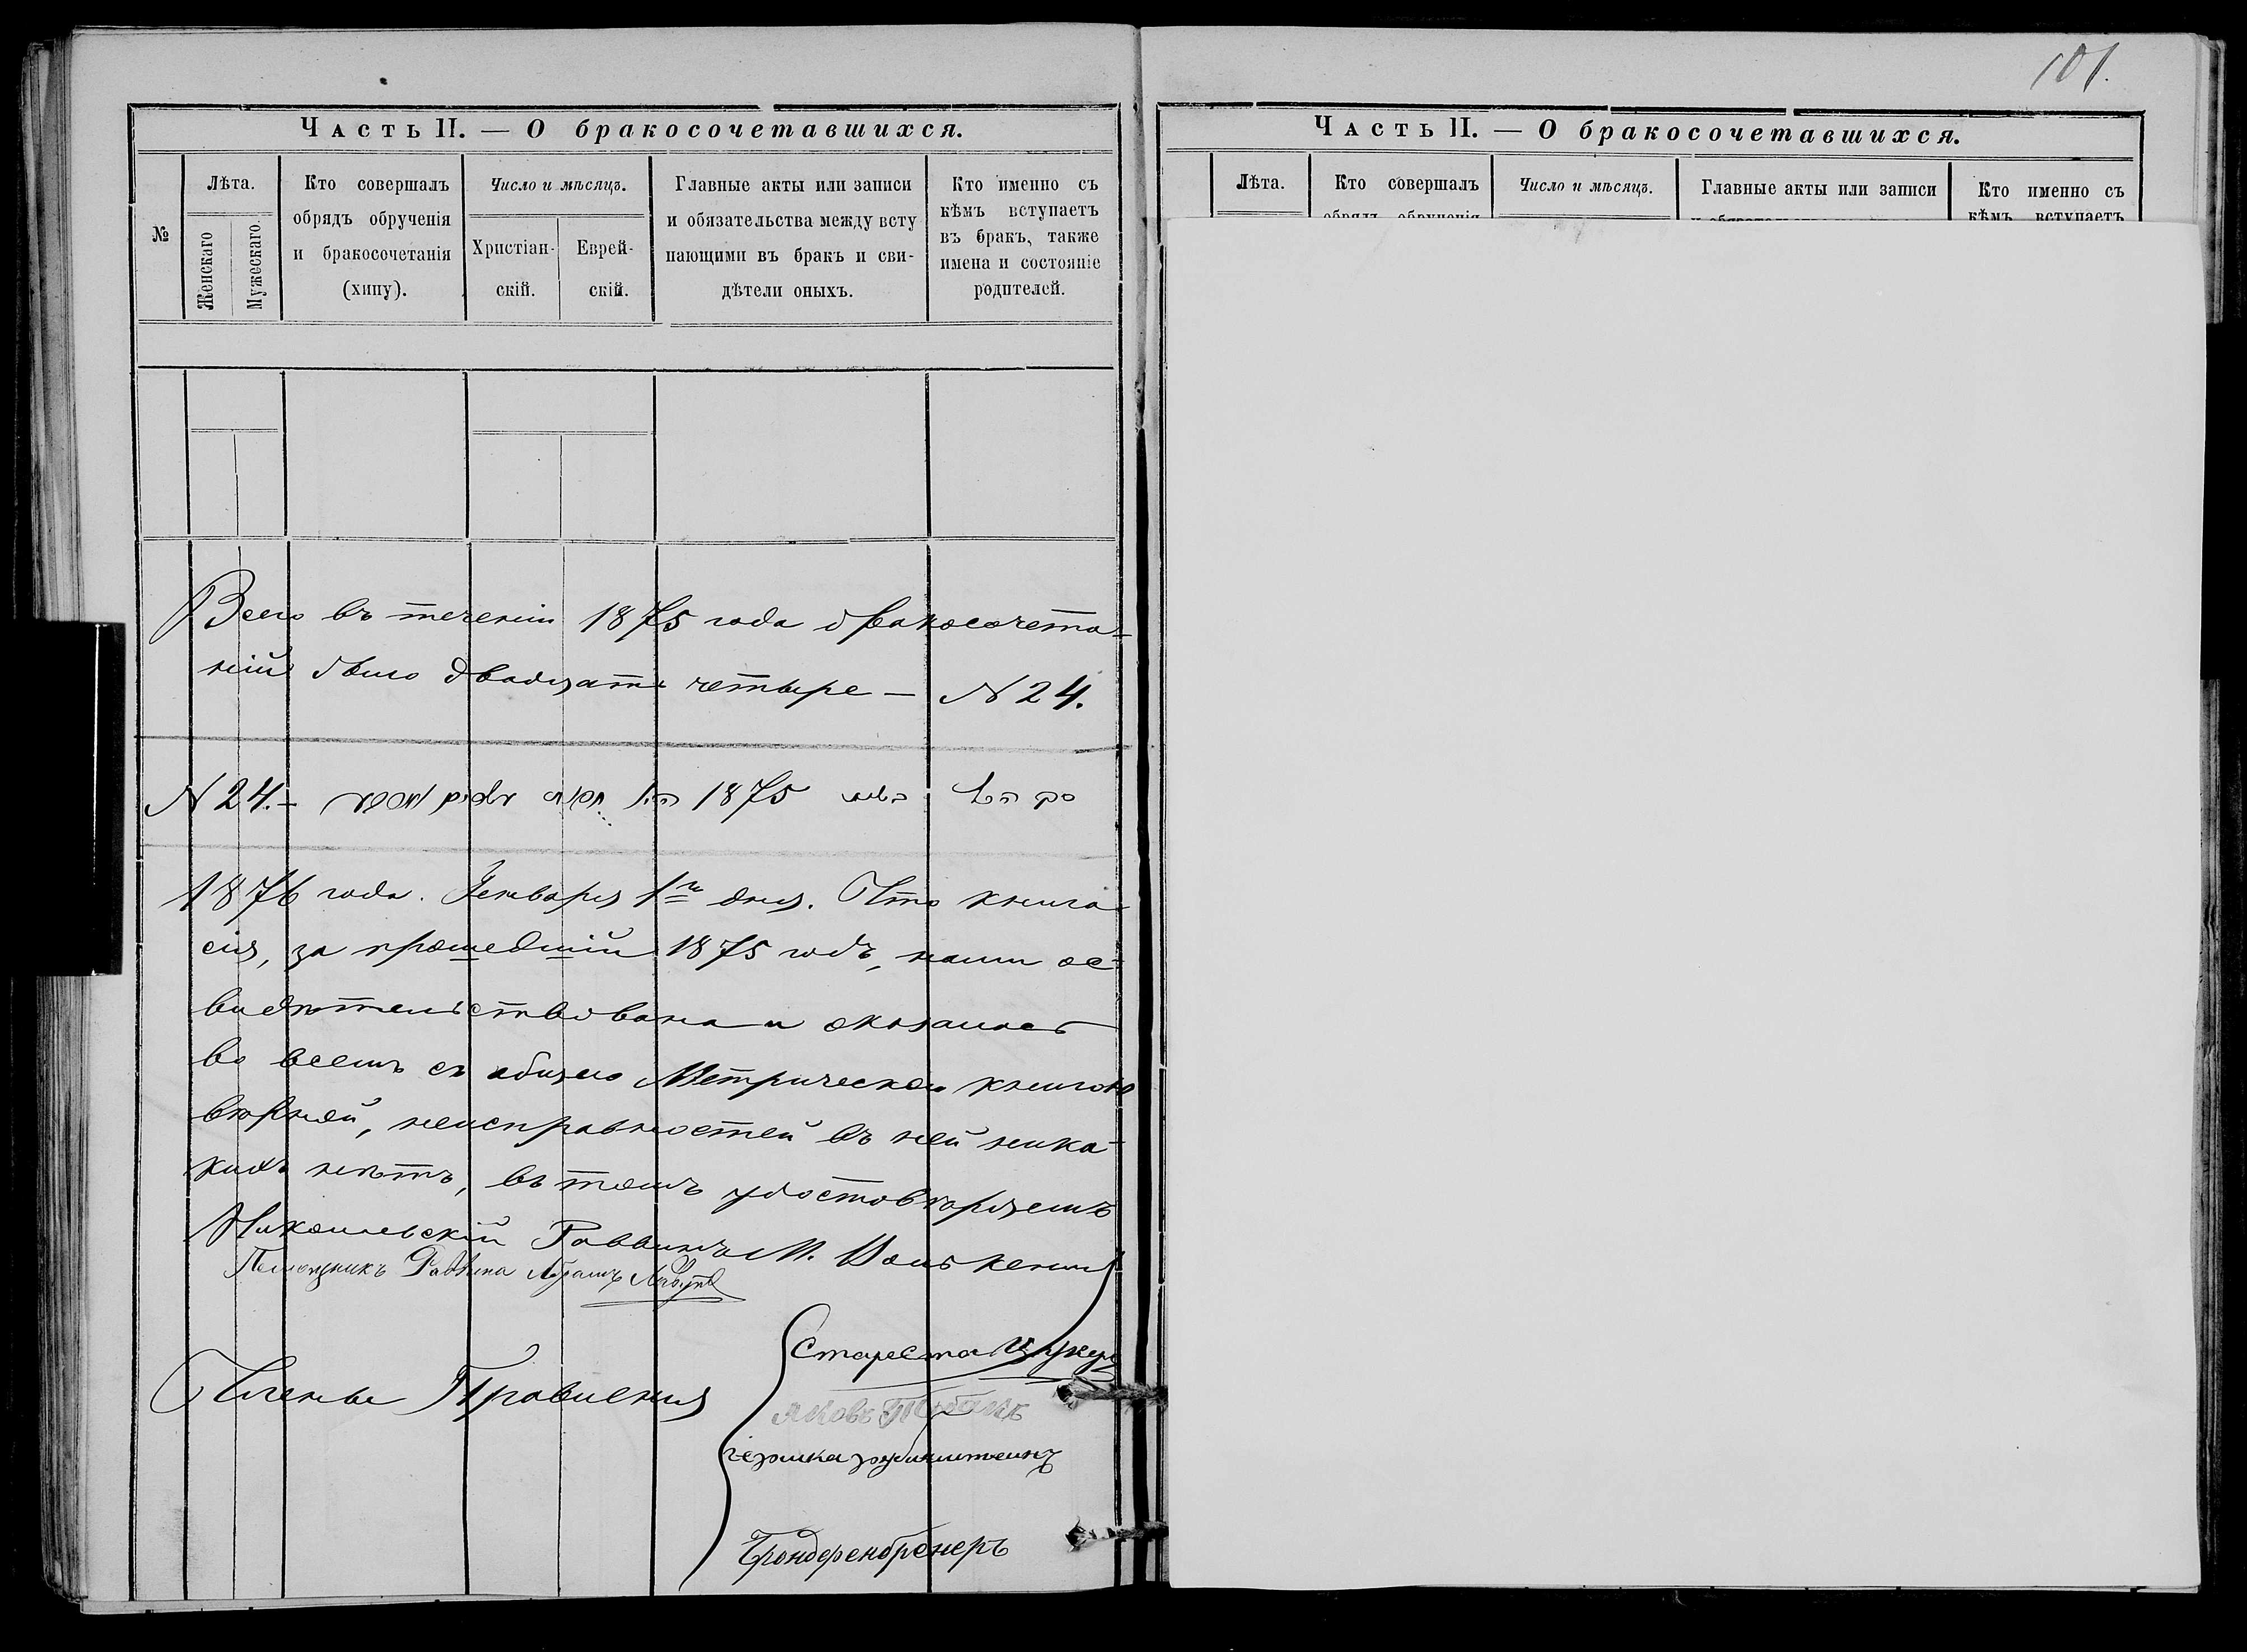 101.
Часть II. — О бракосочетавшихся.
№
Лѣта.
Женскаго
Мужескаго
Кто совершалъ
обрядъ обрученія
и бракосочетанія
(хипу).
Число и мѣсяцъ.
Христіан-
скій.
Еврей-
скій.
Главные акты или записи
и обязательства между всту
пающими въ бракъ и сви-
дѣтели оныхъ.
Кто именно съ
кѣмъ вступаетъ
въ бракъ, также
имена и состояніе
родителей.
Всего въ теченіи 1875 года бракосочета-
ній было двадцать четыре — N 24.
N 24. — 1875
1876 года. Генваря 1го дня. Что книга
сія, за прошедшій 1875 годъ, нами ос-
видѣтельствована и оказалась
во всемъ съ общею Метрическою книгою
вѣрной, неисправностей въ ней ника-
кихъ нѣтъ, въ томъ удостовѣряемъ
Николаевскій Раввинъ М.
Помощникъ Раввина Абрамъ
Члены Правленія
Староста Цукеръ
Яковъ
Часть II. — О бракосочетавшихся.
Лѣта.
Кто совершалъ
обрядъ обрученія
Число и мѣсяцъ.
Главные акты или записи
Кто именно съ
кѣмъ вступаетъ